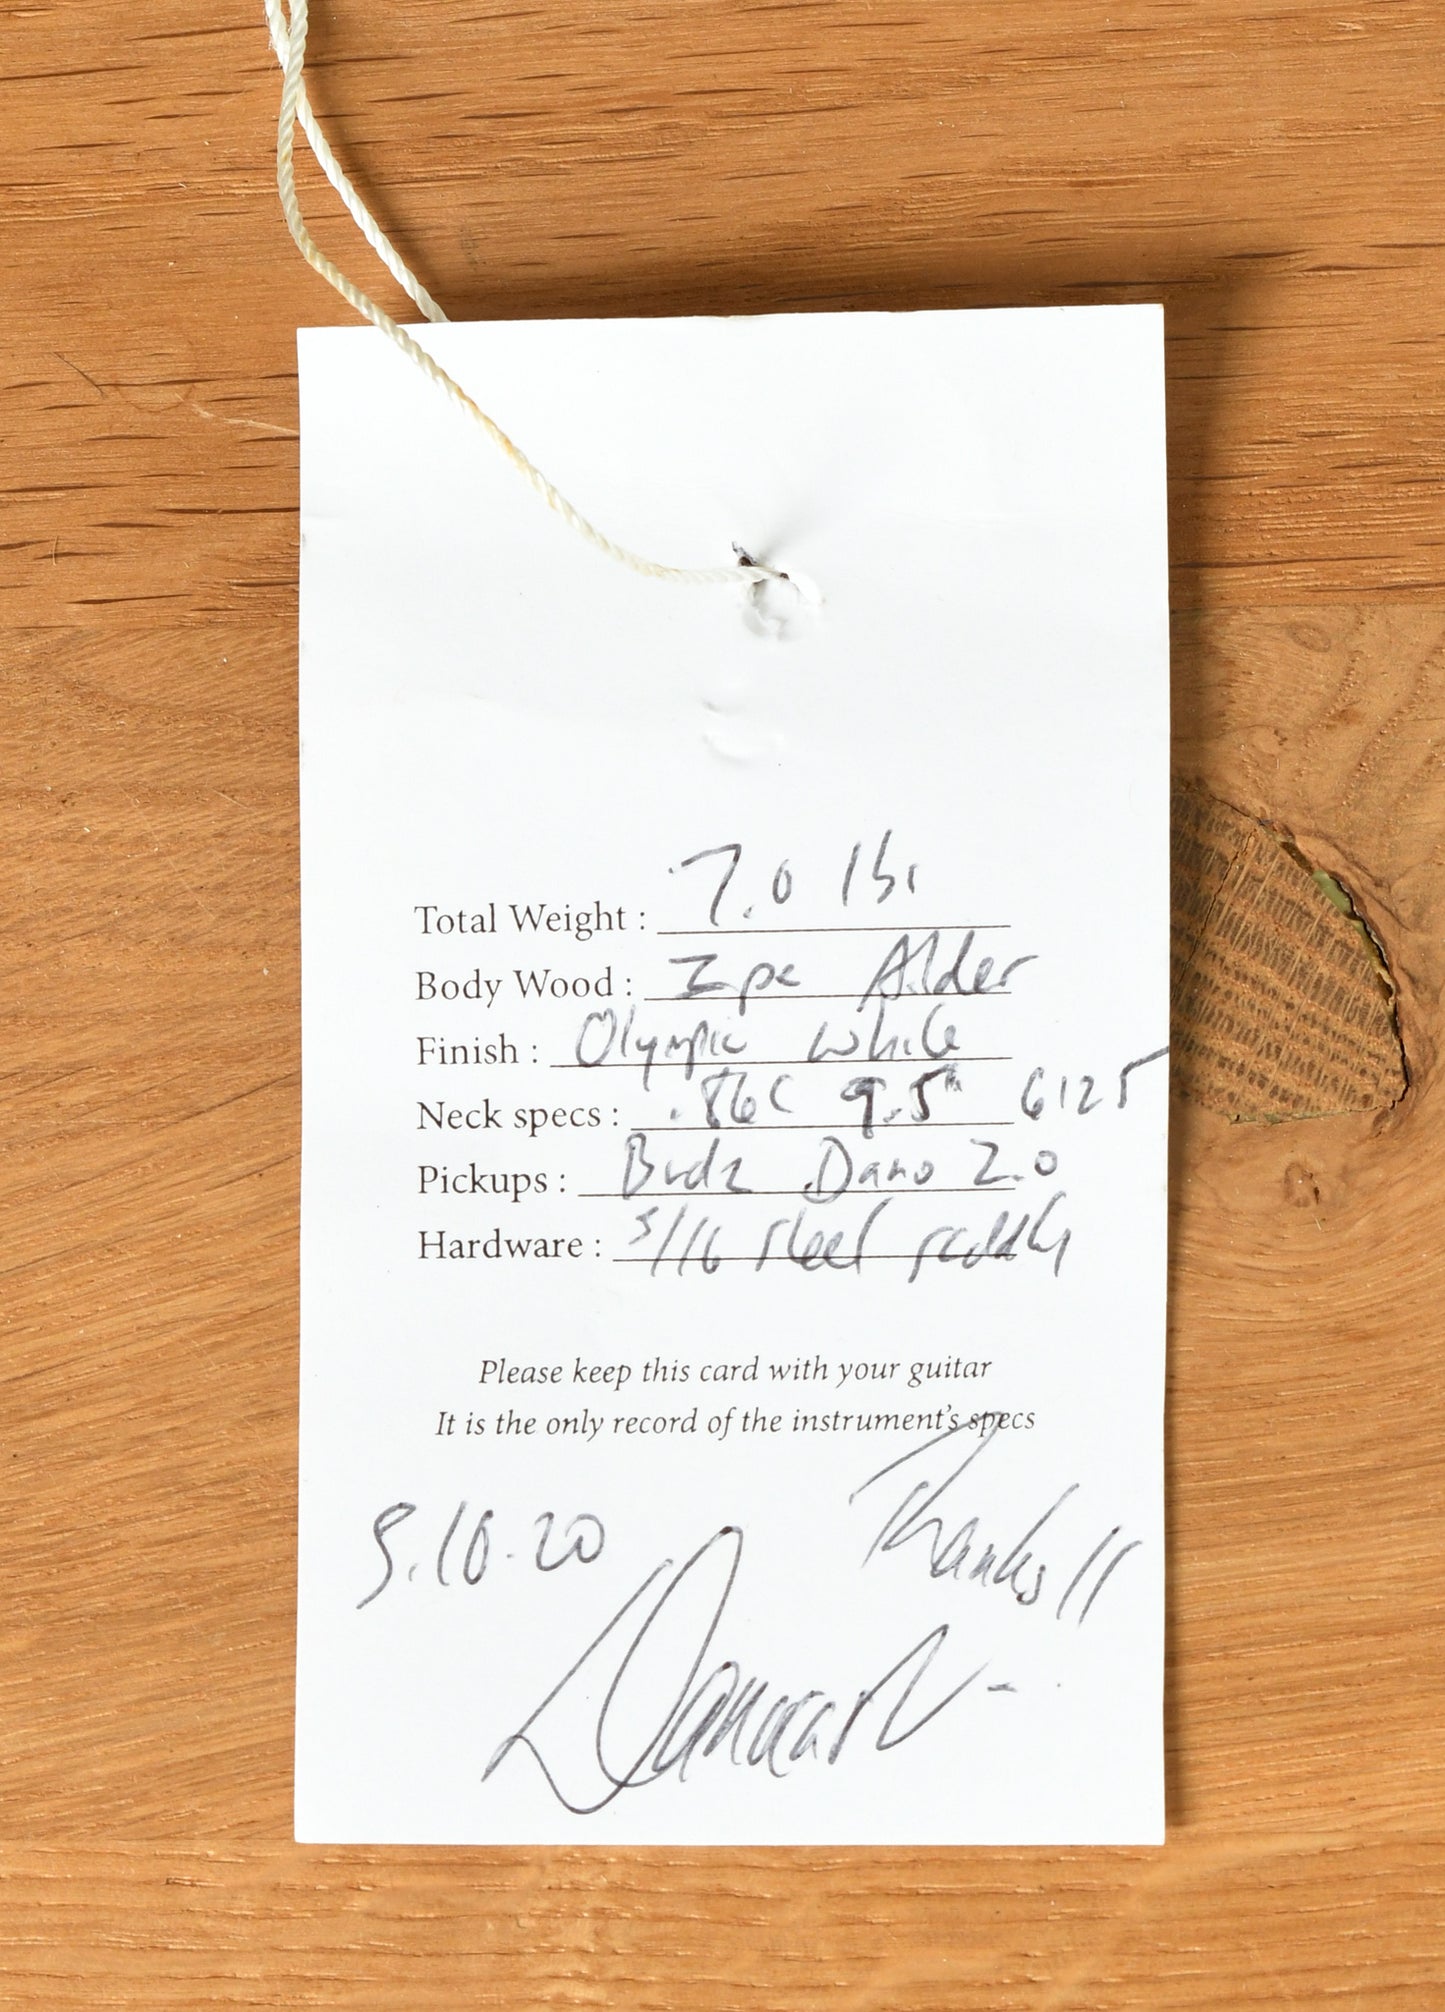 Total Weight : 7.0 lbs
Body Wood : 2 pc Alder
Finish : Olympic white
Neck specs : .86 C 9.5" 6125
Pickups : Dano 2.0
Hardware : 5/16 steel saddles
Please keep this card with your guitar
It is the only record of the instrument's specs
Thanks!!
.10.20